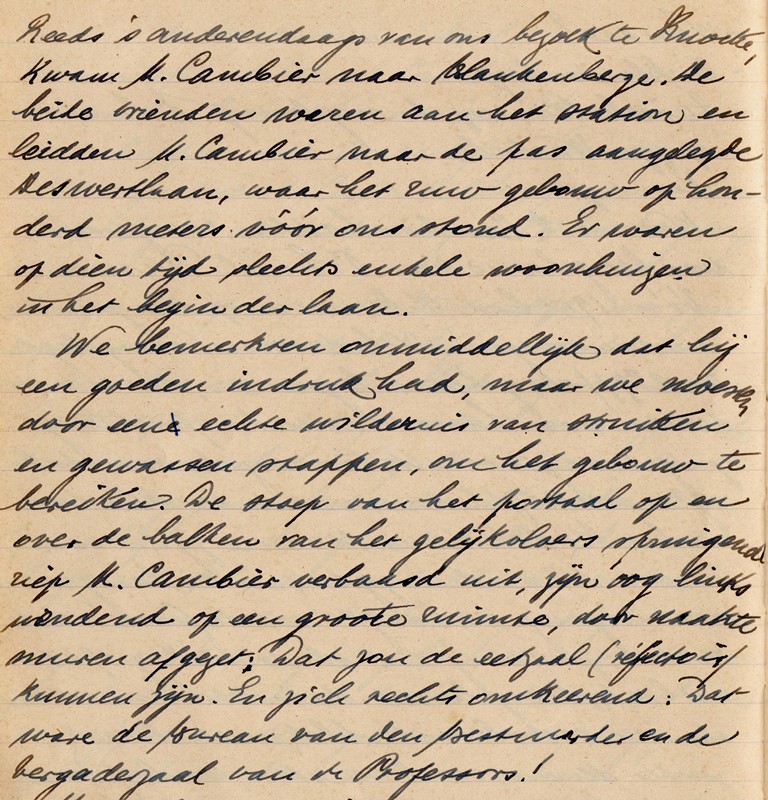 Reeds 's anderendaags van ons bezoek te Knocke,
kwam M. Cambier naar Blankenberge. De
beide vrienden waren aan het station en
leidden M. Cambier naar de pas aangelegde
Deswertlaan, waar het ruw gebouw op hon-
derd meters vóór ons stond. Er waren
op dien tijd slechts enkele woonhuizen
in het begin der laan.
We bemerkten onmiddellijk dat hij
een goeden indruk had, maar we moesten
door eene echte wildernis van struiken
en gewassen stappen, om het gebouw te
bereiken. De stoep van het portaal op en
over de balken van het gelijkvloers springend
riep M. Cambier verbaasd uit, zijn oog links
wendend op een groote ruimte, door naakte
muren afgezet: Dat zou de eetzaal (réfectoir)
kunnen zijn. En zich rechts omkeerend: Dat
ware de bureau van den bestuurder en de
vergaderzaal van de Professors!